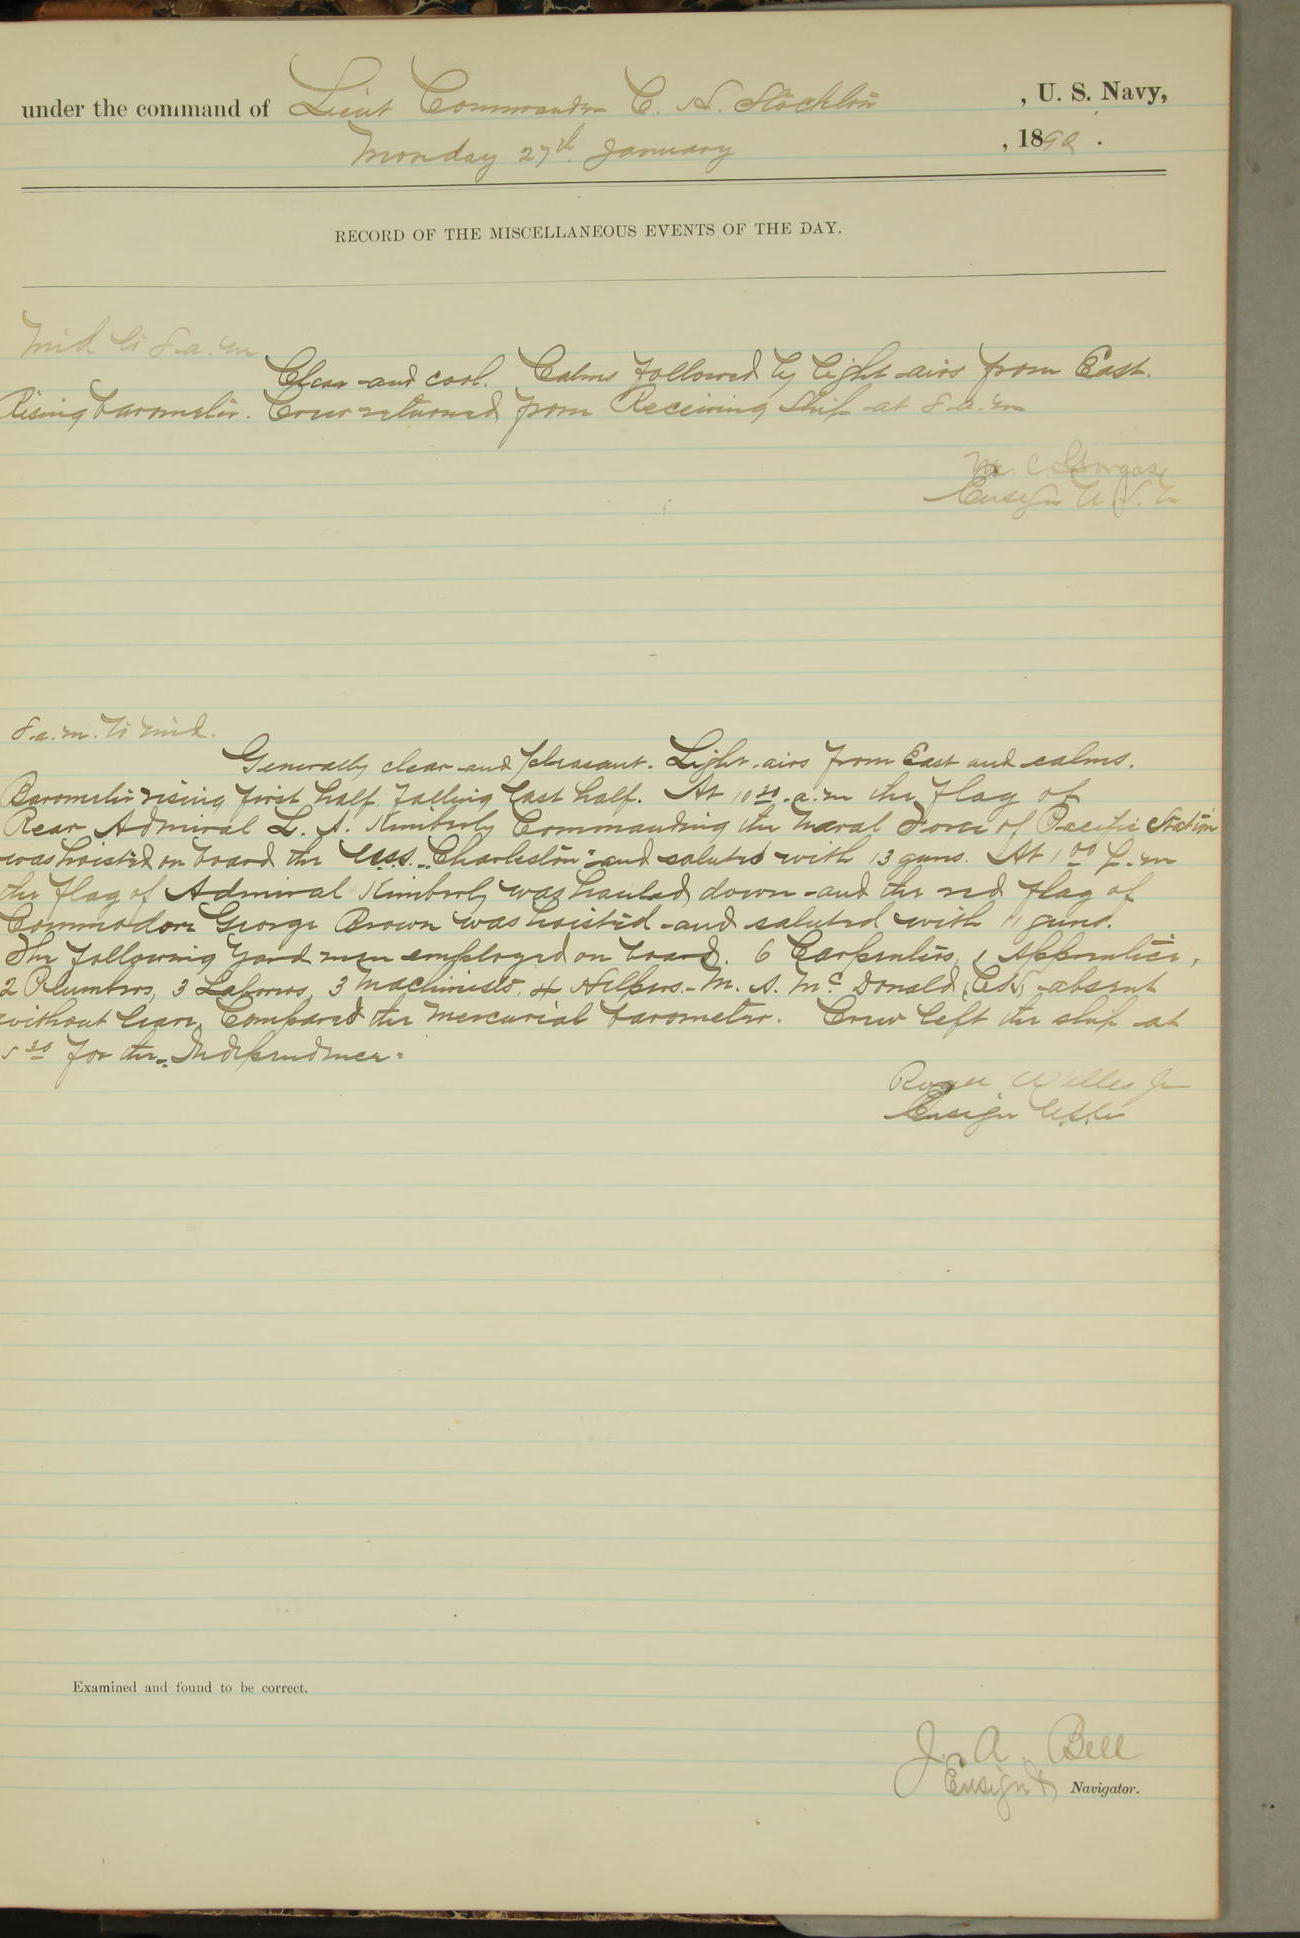 under the command of Lieut Commander C. H. Stockton, U. S. Navy,
Monday 27th January, 1890.
RECORD OF THE MISCELLANEOUS EVENTS OF THE DAY.
Mid to 8 a.m
Clear and cool. Calms followed by light airs from East.
Rising barometer. Crew returned from Receiving Ship at 8 a.m
M. C. Gorgas
Ensign U.S.N
8 a.m. to mid.
Generally clear and pleasant. Light airs from East and calms.
Barometer rising first half falling last half. At 10 30 a.m the flag of
Rear Admiral L. A. Kimberly Commanding the Naval Force of Pacific Station
was hoisted on board the U.S.S. "Charleston" and saluted with 13 guns. At 1 00 p.m
the flag of Admiral Kimberly was hauled down and the red flag of
Commodore George Brown was hoisted and saluted with 11 guns.
The following Yard men employed on board. 6 Carpenters, 1 Apprentice,
2 Plumbers, 3 Laborers, 3 Machinists, 4 Helpers. M. A. McDonald absent
without leave. Compared the mercurial barometer. Crew left the ship at
5 30 for the "Independence"
Roger Welles Jr
Ensign U.S.N.
Examined and found to be correct.
J. A. Bell
Ensign & Navigator.